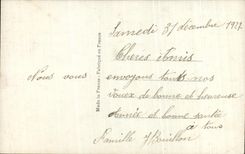 Samedi 31 décembre 1927
Chères Amis
Nous vous envoyons tous nos
voeux de bonne et heureuse
année et bonne santé
à tous
Famille Bouillon
Made in France - Fabriqué en France